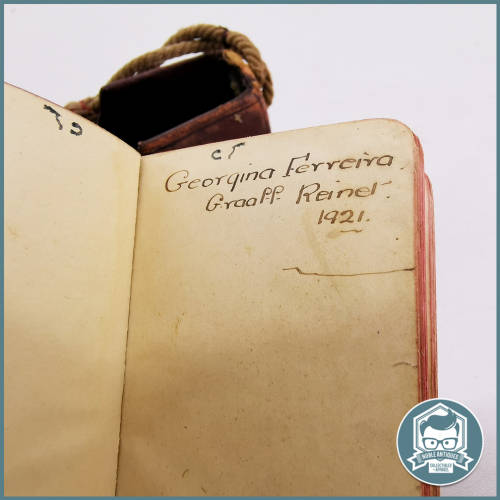 Georgina Ferreira.
Graaff. Reinet.
1921.
NOBLE ANTIQUES
COLLECTIBLES